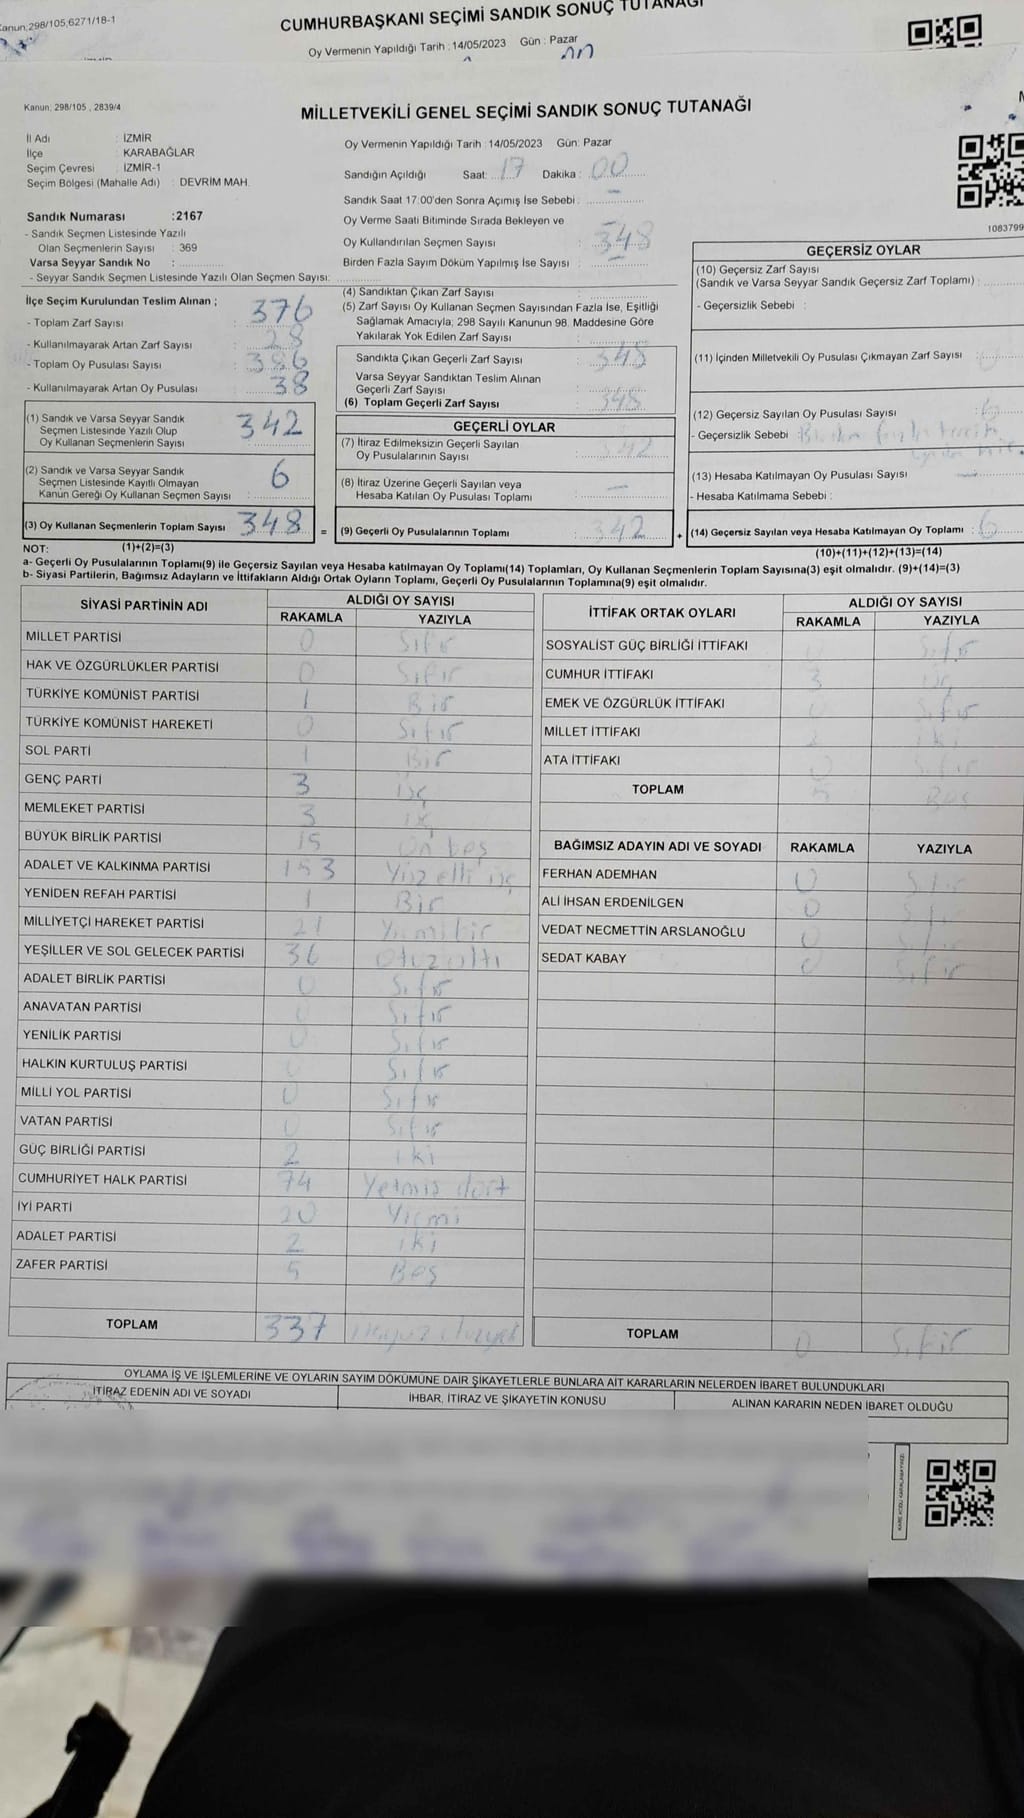 Kanun:298/105,6271/18-1
CUMHURBAŞKANI SEÇİMİ SANDIK SONUÇ TUTANAĞI
Oy Vermenin Yapıldığı Tarih : 14/05/2023 Gün : Pazar
Kanun: 298/105 , 2839/4
MİLLETVEKİLİ GENEL SEÇİMİ SANDIK SONUÇ TUTANAĞI
İl Adı : İZMİR
İlçe : KARABAĞLAR
Seçim Çevresi : İZMİR-1
Seçim Bölgesi (Mahalle Adı) : DEVRİM MAH.
Sandık Numarası :2167
- Sandık Seçmen Listesinde Yazılı
Olan Seçmenlerin Sayısı : 369
Varsa Seyyar Sandık No :
- Seyyar Sandık Seçmen Listesinde Yazılı Olan Seçmen Sayısı:
Oy Vermenin Yapıldığı Tarih : 14/05/2023 Gün: Pazar
Sandığın Açıldığı Saat: 17 Dakika : 00
Sandık Saat 17:00'den Sonra Açımış İse Sebebi :
Oy Verme Saati Bitiminde Sırada Bekleyen ve
Oy Kullandırılan Seçmen Sayısı : 348
Birden Fazla Sayım Döküm Yapılmış İse Sayısı : -
1083799
İlçe Seçim Kurulundan Teslim Alınan ;
- Toplam Zarf Sayısı : 376
- Kullanılmayarak Artan Zarf Sayısı : 28
- Toplam Oy Pusulası Sayısı : 386
- Kullanılmayarak Artan Oy Pusulası : 38
(1) Sandık ve Varsa Seyyar Sandık
Seçmen Listesinde Yazılı Olup
Oy Kullanan Seçmenlerin Sayısı : 342
(2) Sandık ve Varsa Seyyar Sandık
Seçmen Listesinde Kayıtlı Olmayan
Kanun Gereği Oy Kullanan Seçmen Sayısı : 6
(3) Oy Kullanan Seçmenlerin Toplam Sayısı : 348
(4) Sandıktan Çıkan Zarf Sayısı :
(5) Zarf Sayısı Oy Kullanan Seçmen Sayısından Fazla İse, Eşitliği
Sağlamak Amacıyla; 298 Sayılı Kanunun 98. Maddesine Göre
Yakılarak Yok Edilen Zarf Sayısı :
Sandıkta Çıkan Geçerli Zarf Sayısı : 348
Varsa Seyyar Sandıktan Teslim Alınan
Geçerli Zarf Sayısı :
(6) Toplam Geçerli Zarf Sayısı : 348
GEÇERLİ OYLAR
(7) İtiraz Edilmeksizin Geçerli Sayılan
Oy Pusulalarının Sayısı : 342
(8) İtiraz Üzerine Geçerli Sayılan veya
Hesaba Katılan Oy Pusulası Toplamı : -
= (9) Geçerli Oy Pusulalarının Toplamı : 342
GEÇERSİZ OYLAR
(10) Geçersiz Zarf Sayısı
(Sandık ve Varsa Seyyar Sandık Geçersiz Zarf Toplamı) :
- Geçersizlik Sebebi :
(11) İçinden Milletvekili Oy Pusulası Çıkmayan Zarf Sayısı : 0
(12) Geçersiz Sayılan Oy Pusulası Sayısı : 6
- Geçersizlik Sebebi : Birden fazla tercih
(13) Hesaba Katılmayan Oy Pusulası Sayısı : -
- Hesaba Katılmama Sebebi :
+ (14) Geçersiz Sayılan veya Hesaba Katılmayan Oy Toplamı : 6
NOT: (1)+(2)=(3)
(10)+(11)+(12)+(13)=(14)
a- Geçerli Oy Pusulalarının Toplamı(9) ile Geçersiz Sayılan veya Hesaba katılmayan Oy Toplamı(14) Toplamları, Oy Kullanan Seçmenlerin Toplam Sayısına(3) eşit olmalıdır. (9)+(14)=(3)
b- Siyasi Partilerin, Bağımsız Adayların ve İttifakların Aldığı Ortak Oyların Toplamı, Geçerli Oy Pusulalarının Toplamına(9) eşit olmalıdır.
SİYASİ PARTİNİN ADI ALDIĞI OY SAYISI
RAKAMLA YAZIYLA
MİLLET PARTİSİ 0 Sıfır
HAK VE ÖZGÜRLÜKLER PARTİSİ 0 Sıfır
TÜRKİYE KOMÜNİST PARTİSİ 1 Bir
TÜRKİYE KOMÜNİST HAREKETİ 0 Sıfır
SOL PARTİ 1 Bir
GENÇ PARTİ 3 Üç
MEMLEKET PARTİSİ 3 Üç
BÜYÜK BİRLİK PARTİSİ 15 On beş
ADALET VE KALKINMA PARTİSİ 153 Yüz elli üç
YENİDEN REFAH PARTİSİ 1 Bir
MİLLİYETÇİ HAREKET PARTİSİ 21 Yirmi bir
YEŞİLLER VE SOL GELECEK PARTİSİ 36 Otuz altı
ADALET BİRLİK PARTİSİ 0 Sıfır
ANAVATAN PARTİSİ 0 Sıfır
YENİLİK PARTİSİ 0 Sıfır
HALKIN KURTULUŞ PARTİSİ 0 Sıfır
MİLLİ YOL PARTİSİ 0 Sıfır
VATAN PARTİSİ 0 Sıfır
GÜÇ BİRLİĞİ PARTİSİ 2 iki
CUMHURİYET HALK PARTİSİ 74 Yetmiş dört
İYİ PARTİ 20 Yirmi
ADALET PARTİSİ 2 iki
ZAFER PARTİSİ 5 Beş
TOPLAM 337
İTTİFAK ORTAK OYLARI ALDIĞI OY SAYISI
RAKAMLA YAZIYLA
SOSYALİST GÜÇ BİRLİĞİ İTTİFAKI 0 Sıfır
CUMHUR İTTİFAKI 3 Üç
EMEK VE ÖZGÜRLÜK İTTİFAKI 0 Sıfır
MİLLET İTTİFAKI 2 iki
ATA İTTİFAKI 0 Sıfır
TOPLAM 5 Beş
BAĞIMSIZ ADAYIN ADI VE SOYADI RAKAMLA YAZIYLA
FERHAN ADEMHAN 0 Sıfır
ALİ İHSAN ERDENİLGEN 0 Sıfır
VEDAT NECMETTİN ARSLANOĞLU 0 Sıfır
SEDAT KABAY 0 Sıfır
TOPLAM 0 Sıfır
OYLAMA İŞ VE İŞLEMLERİNE VE OYLARIN SAYIM DÖKÜMÜNE DAİR ŞİKAYETLERLE BUNLARA AİT KARARLARIN NELERDEN İBARET BULUNDUKLARI
İTİRAZ EDENİN ADI VE SOYADI İHBAR, İTİRAZ VE ŞİKAYETİN KONUSU ALINAN KARARIN NEDEN İBARET OLDUĞU
KARE KODU KARALAMAYINIZ!